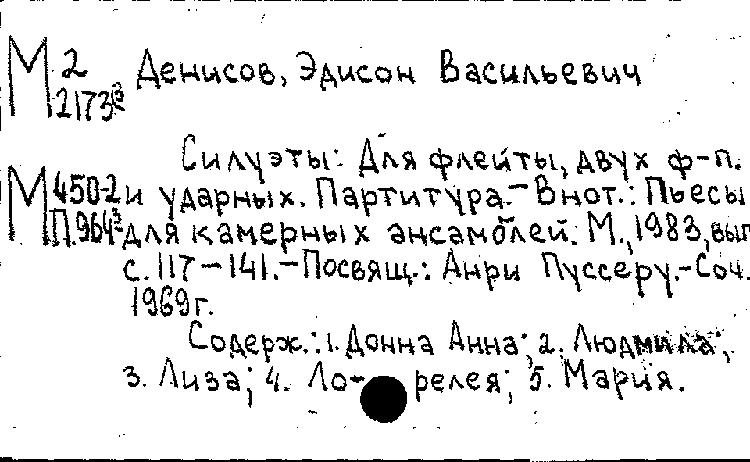 М 2 Денисов, Эдисон Васильевич
2173
Силуэты: Для флейты, двух ф-п.
М 450-2 и ударных. Партитура.- В нот.: Пьесы
П.964 для камерных ансамблей. М., 1983, вып
с. 117-141.-Посвящ.: Анри Пуссеру.-Соч.
1969г.
Содерж.: 1. Донна Анна; 2. Людмила;
3. Лиза; 4. Ло- релея; 5. Мария.